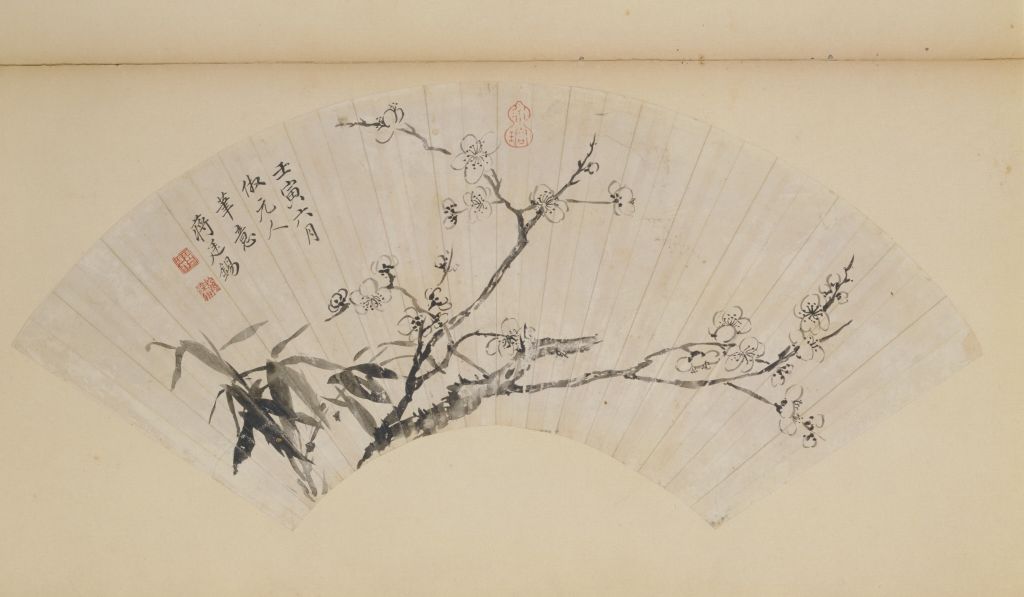 壬寅六月
倣元人
筆意
蔣廷錫